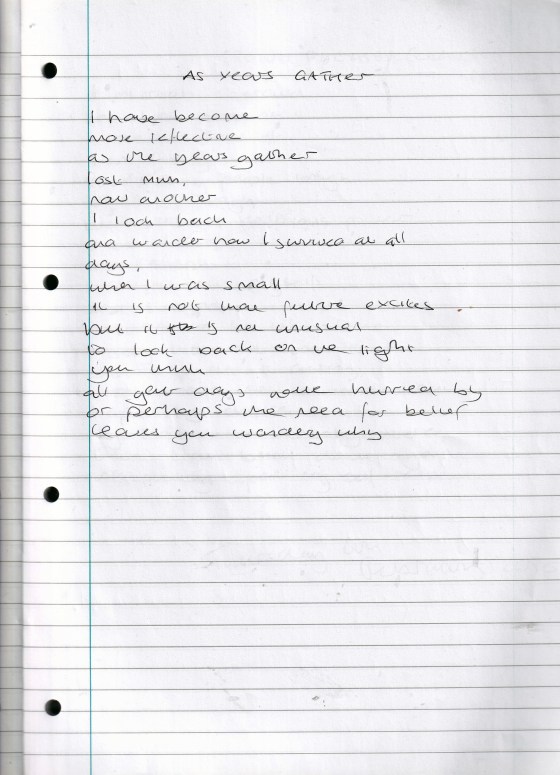 AS YEARS GATHER
I have become
more reflective
as the years gather
last mum,
now another
I look back
and wonder how I survived at all
days,
when I was small
it is not that future excites
but it is not unusual
to look back on the light
you
all your days have hurried by
or perhaps the need for belief
leaves you wondering why